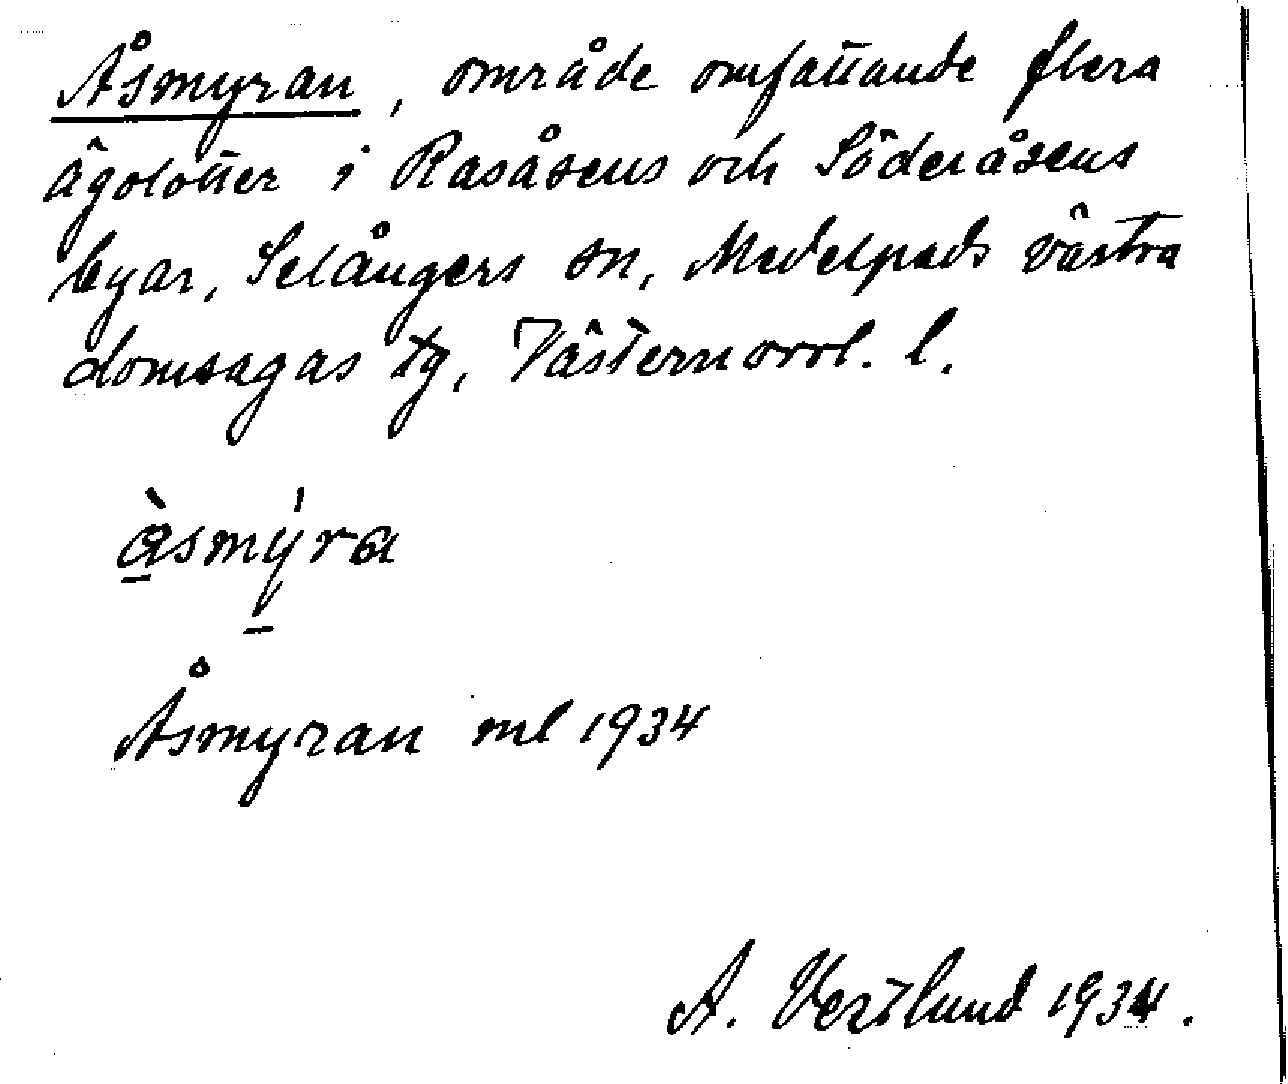 Åsmyran, område omfattande flera
ägolotter i Rasåsens och Söderåsens
byar, Selångers sn, Medelpads västra
domsagas tg, Västernorrl. l.
åsmýra
Åsmyran ml 1934
A. Vestlund 1934.